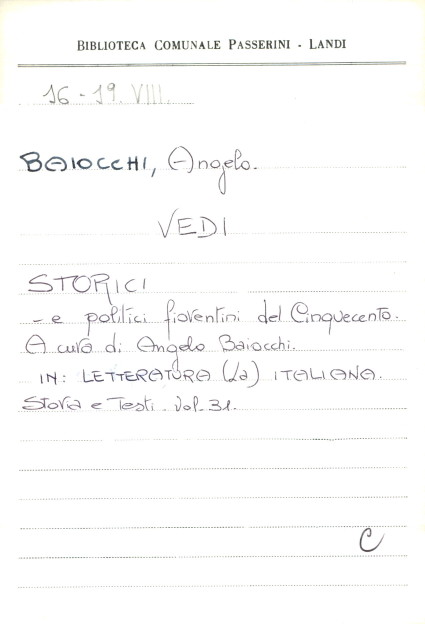 BIBLIOTECA COMUNALE PASSERINI - LANDI
16-19. VIII.
BAIOCCHI, Angelo.
VEDI
STORICI
- e politici fiorentini del Cinquecento.
A cura di Angelo Baiocchi.
IN: LETTERATURA (La) ITALIANA.
Storia e Testi. Vol. 31.
C